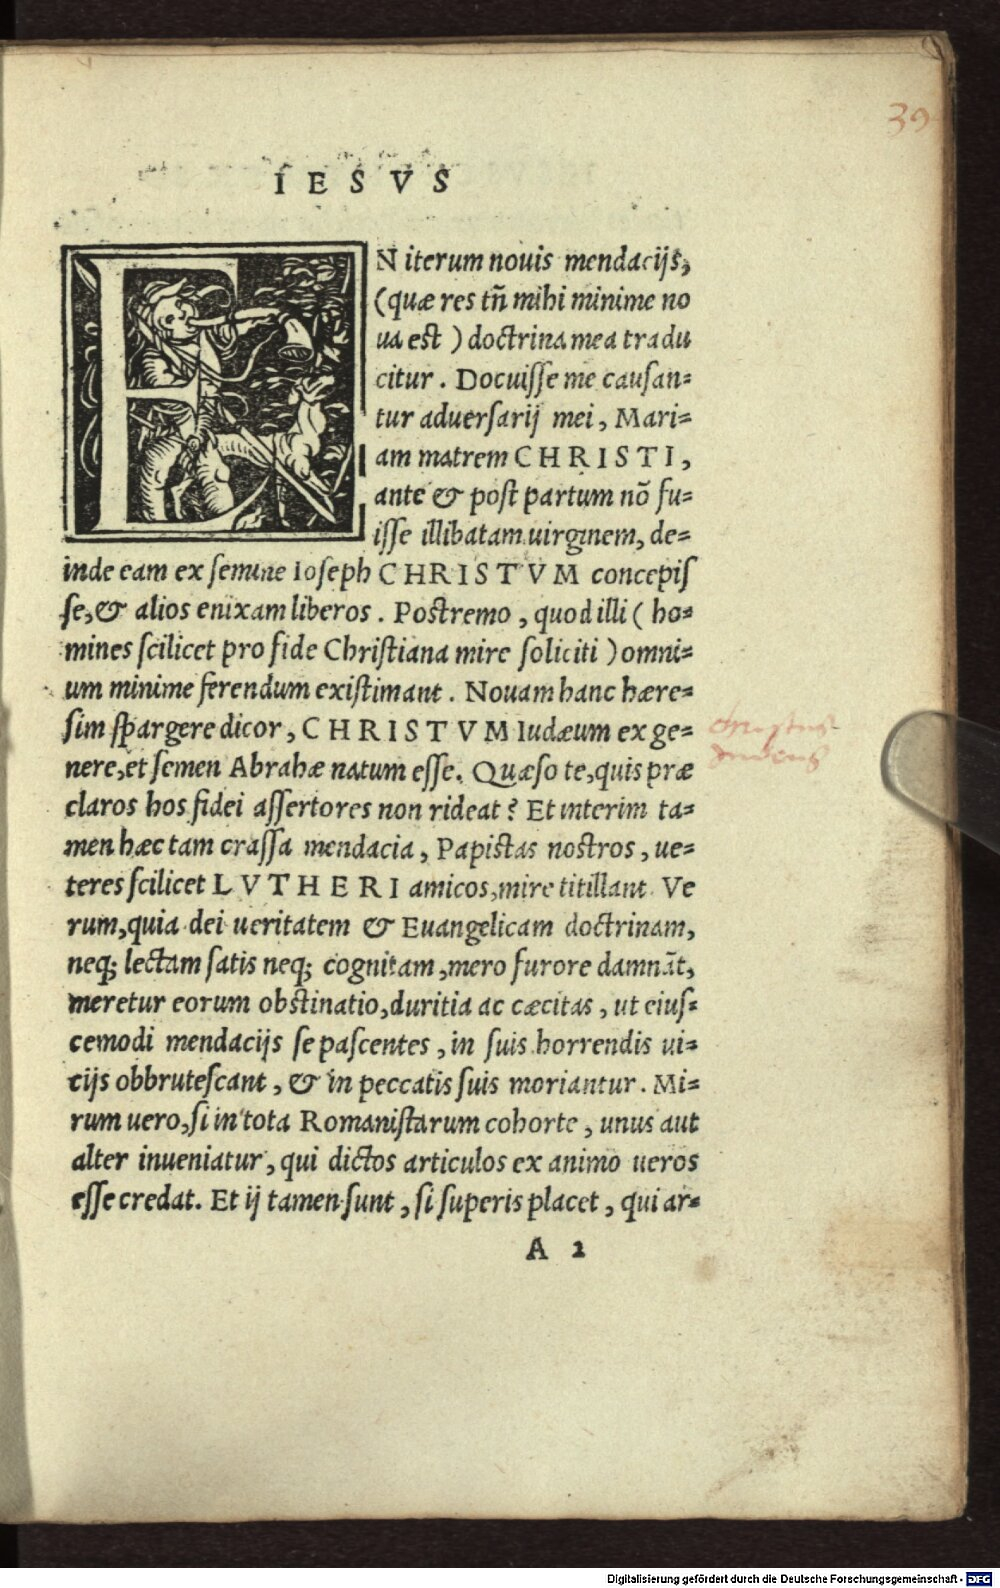 39
IESVS
EN iterum nouis mendacijs,
(quæ res tñ mihi minime no
ua est) doctrina mea tradu
citur. Docuisse me causan=
tur aduersarij mei, Mari=
am matrem CHRISTI,
ante & post partum nõ fu=
isse illibatam uirginem, de=
inde eam ex semine Ioseph CHRISTVM concepis
se, & alios enixam liberos. Postremo, quod illi (ho=
mines scilicet pro fide Christiana mire soliciti) omni=
um minime ferendum existimant. Nouam hanc hære=
sim spargere dicor, CHRISTVM Iudæum ex ge=
nere, et semen Abrahæ natum esse. Quæso te, quis præ
claros hos fidei assertores non rideat? Et interim ta=
men hæc tam crassa mendacia, Papistas nostros, ue=
teres scilicet LVTHERI amicos, mire titillant. Ve
rum, quia dei ueritatem & Euangelicam doctrinam,
neq; lectam satis neq; cognitam, mero furore damnãt,
meretur eorum obstinatio, duritia ac cæcitas, ut eius=
cemodi mendacijs se pascentes, in suis horrendis ui=
cijs obbrutescant, & in peccatis suis moriantur. Mi=
rum uero, si in tota Romanistarum cohorte, unus aut
alter inueniatur, qui dictos articulos ex animo ueros
esse credat. Et ij tamen sunt, si superis placet, qui ar=
A 2
Christus
Judeus
Digitalisierung gefördert durch die Deutsche Forschungsgemeinschaft - DFG